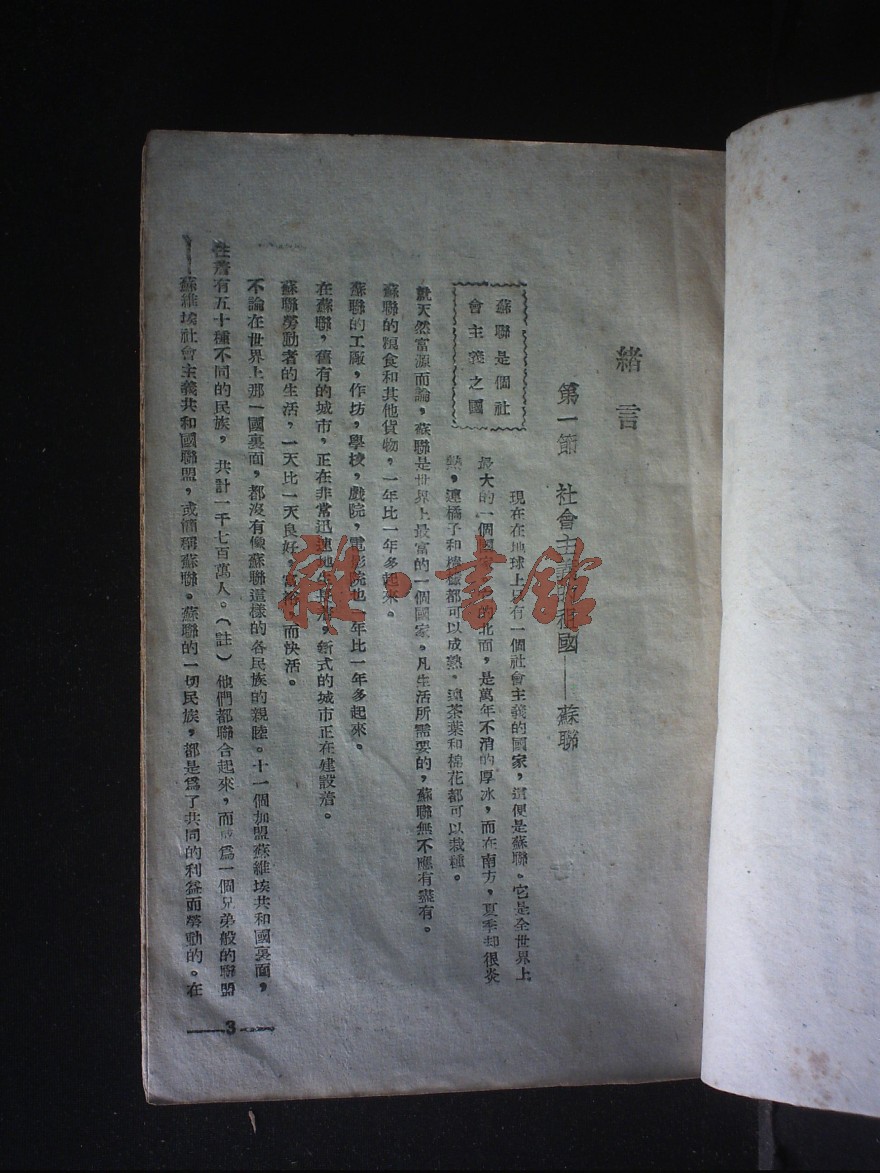 緒言
第一節 社會主義祖國——蘇聯
蘇聯是個社
會主義之國
現在在地球上只有一個社會主義的國家，這便是蘇聯。它是全世界上
最大的一個國家的北面，是萬年不消的厚冰，而在南方，夏季却很炎
熱，連橘子和檸檬都可以成熟，連茶葉和棉花都可以栽種。
就天然富源而論，蘇聯是世界上最富的一個國家。凡生活所需要的，蘇聯無不應有盡有。
蘇聯的糧食和其他貨物，一年比一年多起來。
蘇聯的工廠，作坊，學校，戲院，電影院也一年比一年多起來。
在蘇聯，舊有的城市，正在非常迅速地生長着，新式的城市正在建設着。
蘇聯勞動者的生活，一天比一天良好，富裕，而快活。
不論在世界上那一國裏面，都沒有像蘇聯這樣的各民族的親睦。十一個加盟蘇維埃共和國裏面，
住着有五十種不同的民族，共計一千七百萬人。（註）他們都聯合起來，而成爲一個兄弟般的聯盟
——蘇維埃社會主義共和國聯盟，或簡稱蘇聯。蘇聯的一切民族，都是爲了共同的利益而勞動的。在
3
雜·書館